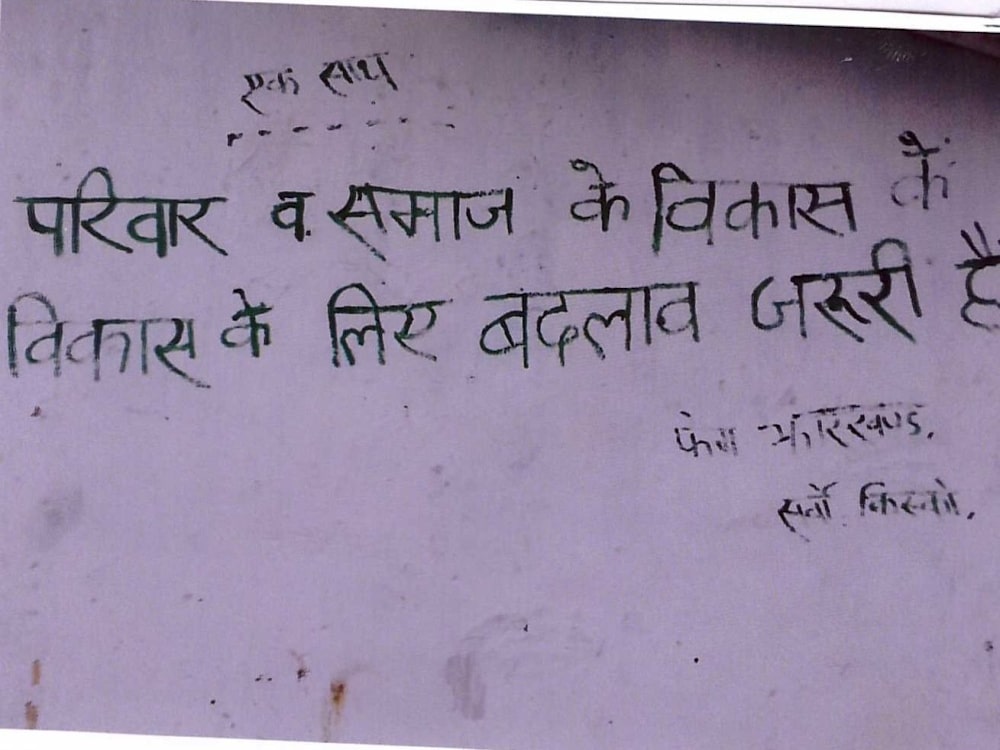 एक साथ
परिवार व समाज के विकास के
विकास के लिए बदलाव जरूरी है
फेम झारखण्ड,
किस्को,